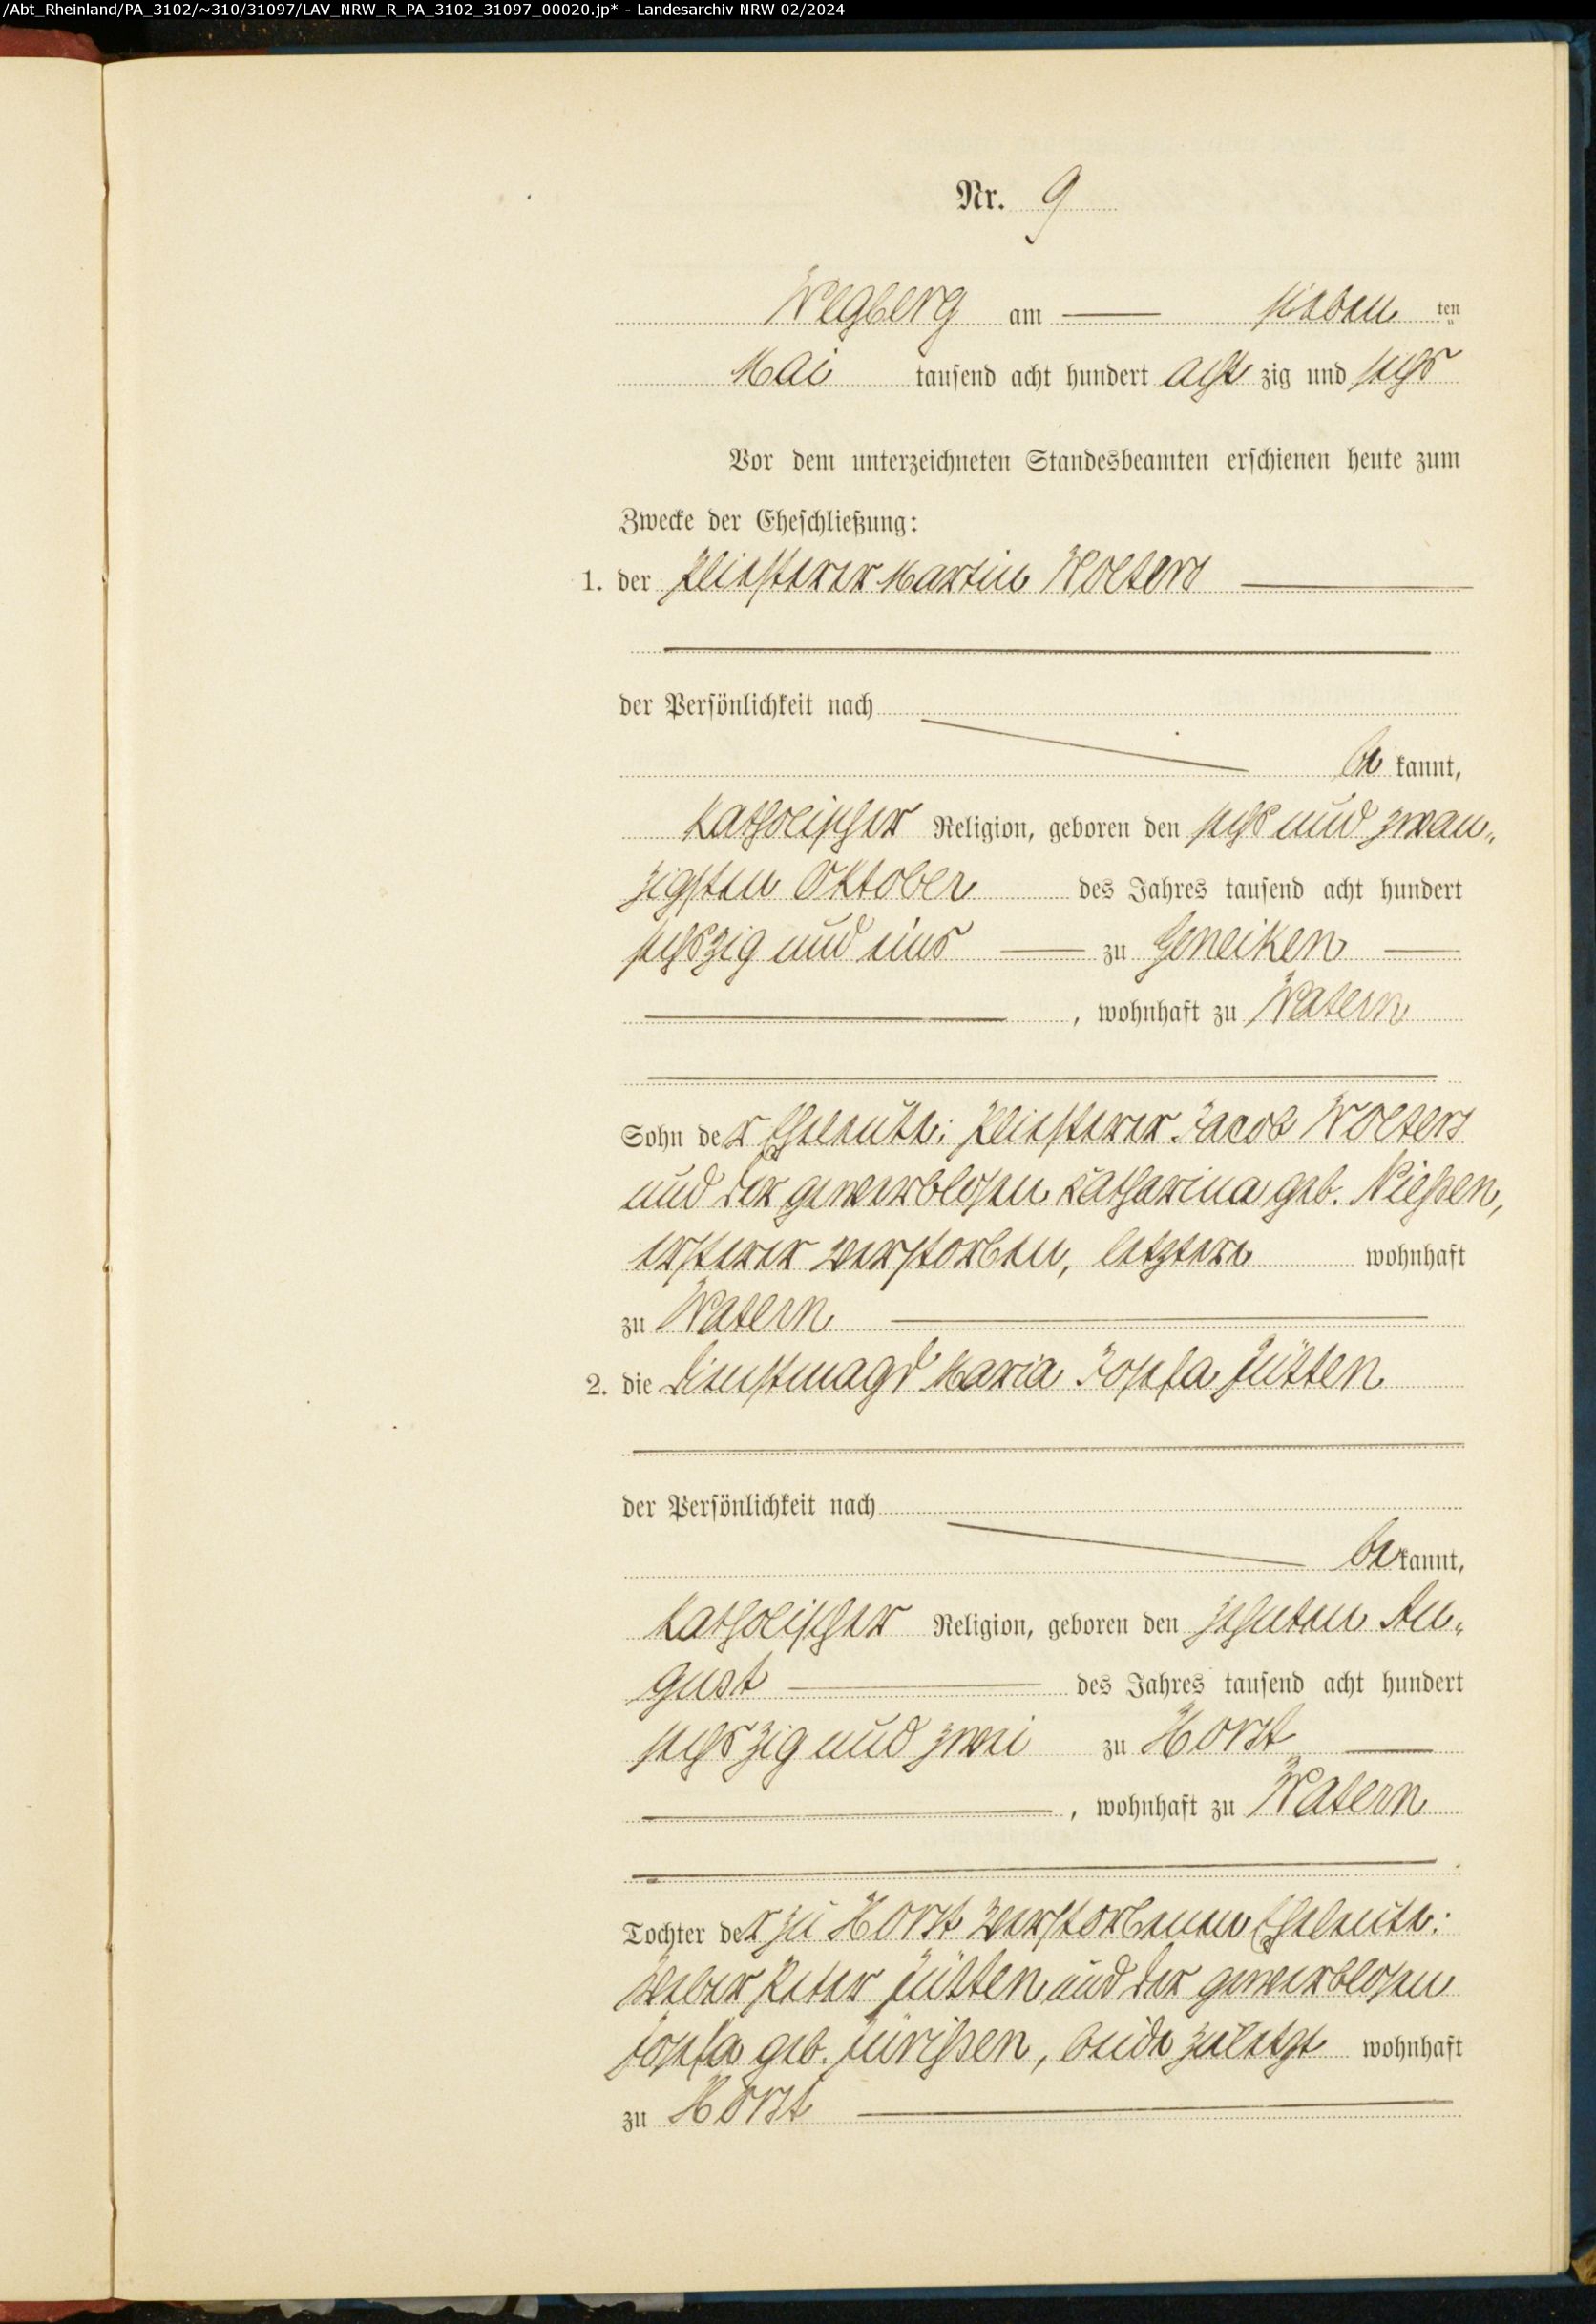 /Abt_Rheinland/PA_3102/~310/31097/LAV_NRW_R_PA_3102_31097_00020.jp* - Landesarchiv NRW 02/2024
Nr. 9
Wegberg am sieben ten
Mai tausend acht hundert acht zig und sechs
Vor dem unterzeichneten Standesbeamten erschienen heute zum
Zwecke der Eheschließung:
1. der Pliesterer Martin Wolters
der Persönlichkeit nach
be kannt,
katholischer Religion, geboren den sechs und zwan-
zigsten Oktober des Jahres tausend acht hundert
sechszig und eins zu Geneiken
, wohnhaft zu Watern
Sohn der Eheleute: Pliesterer Jacob Wolters
und der gewerblosen Katharina geb. Nießen,
ersterer verstorben, letztere wohnhaft
zu Watern
2. die Dienstmagd Maria Josefa Jütten
der Persönlichkeit nach
bekannt,
katholischer Religion, geboren den zehnten Au-
gust des Jahres tausend acht hundert
sechszig und zwei zu Horst
, wohnhaft zu Watern
Tochter der zu Horst verstorbenen Eheleute:
Weber Peter Jütten und der gewerblosen
Josefa geb. Jürißen, beide zuletzt wohnhaft
zu Horst